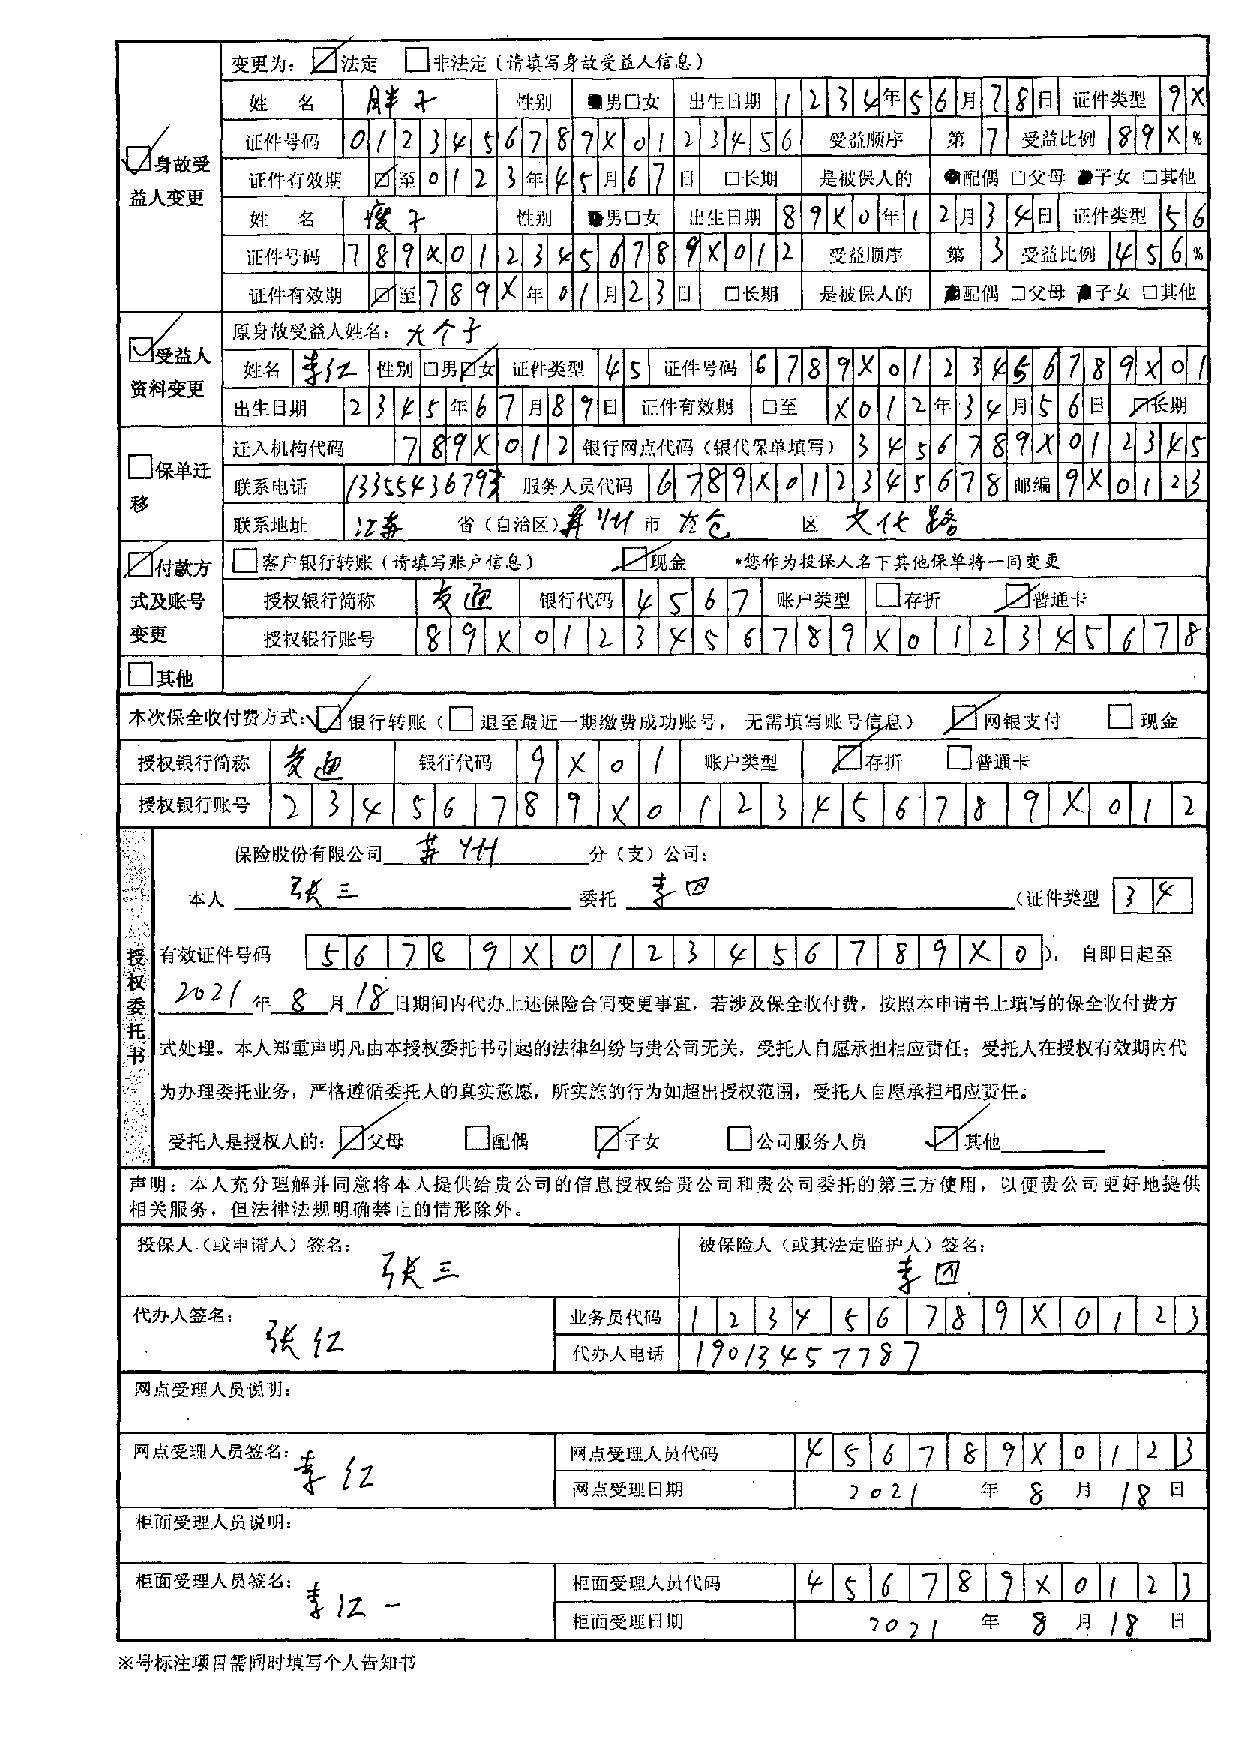 变更为：☑法定 □非法定（请填写身故受益人信息）
☑身故受益人变更
姓 名 胖子 性别 ●男□女 出生日期 1234年56月78日 证件类型 9X
证件号码 0123456789X0123456 受益顺序 第7 受益比例 89X%
证件有效期 ☑至0123年45月67日 □长期 是被保人的 ●配偶 □父母 ●子女 □其他
姓 名 瘦子 性别 ●男□女 出生日期 89X0年12月34日 证件类型 56
证件号码 789X0123456789X012 受益顺序 第3 受益比例 456%
证件有效期 ☑至789X年01月23日 □长期 是被保人的 ●配偶 □父母 ●子女 □其他
☑受益人资料变更
原身故受益人姓名：大个子
姓名 李红 性别 □男☑女 证件类型 45 证件号码 6789X0123456789X01
出生日期 2345年67月89日 证件有效期 □至 X012年34月56日 ☑长期
□保单迁移
迁入机构代码 789X012 银行网点代码（银代保单填写） 3456789X012345
联系电话 13355436793 服务人员代码 6789X012345678 邮编 9X0123
联系地址 江苏 省（自治区）苏州 市 太仓 区 文化路
☑付款方式及账号变更
□客户银行转账（请填写账户信息） ☑现金 *您作为投保人名下其他保单将一同变更
授权银行简称 交通 银行代码 4567 账户类型 □存折 ☑普通卡
授权银行账号 89X0123456789X012345678
□其他
本次保全收付费方式：☑银行转账（□退至最近一期缴费成功账号，无需填写账号信息） ☑网银支付 □现金
授权银行简称 交通 银行代码 9X01 账户类型 ☑存折 □普通卡
授权银行账号 23456789X0123456789X012
授权委托书
保险股份有限公司 苏州 分（支）公司：
本人 张三 委托 李四 （证件类型 34
有效证件号码 56789X0123456789X0 ），自即日起至
2021年8月18日期间内代办上述保险合同变更事宜，若涉及保全收付费，按照本申请书上填写的保全收付费方
式处理。本人郑重声明凡由本授权委托书引起的法律纠纷与贵公司无关，受托人自愿承担相应责任；受托人在授权有效期内代
为办理委托业务，严格遵循委托人的真实意愿，所实施的行为如超出授权范围，受托人自愿承担相应责任。
受托人是授权人的：☑父母 □配偶 ☑子女 □公司服务人员 ☑其他
声明：本人充分理解并同意将本人提供给贵公司的信息授权给贵公司和贵公司委托的第三方使用，以便贵公司更好地提供
相关服务，但法律法规明确禁止的情形除外。
投保人（或申请人）签名： 张三 被保险人（或其法定监护人）签名： 李四
代办人签名： 张红 业务员代码 123456789X0123
代办人电话 19013457787
网点受理人员说明：
网点受理人员签名： 李红 网点受理人员代码 456789X0123
网点受理日期 2021 年 8 月 18 日
柜面受理人员说明：
柜面受理人员签名： 李红一 柜面受理人员代码 456789X0123
柜面受理日期 2021 年 8 月 18 日
※号标注项目需同时填写个人告知书